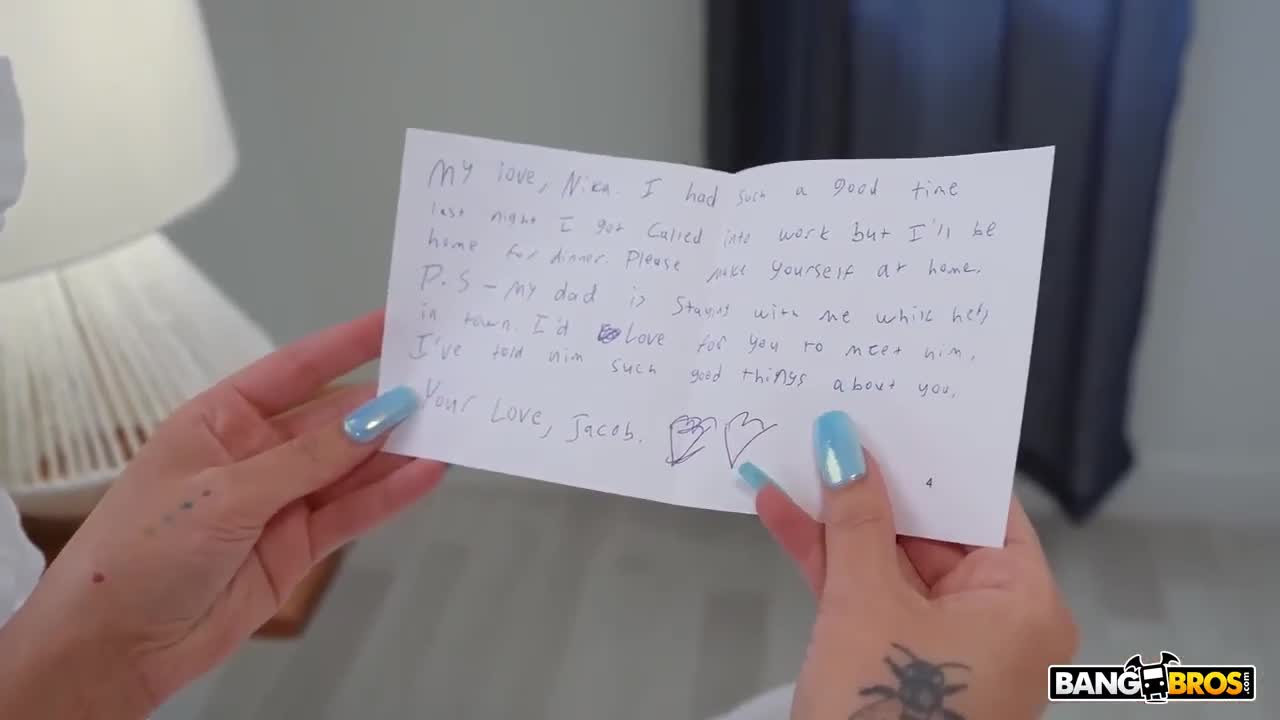 My love, Nika. I had such a good time
last night I got called into work but I'll be
home for dinner. Please make yourself at home.
P.S - My dad is staying with me while he's
in town. I'd Love for you to meet him.
I've told him such good things about you.
Your Love, Jacob.
4
BANGBROS.com